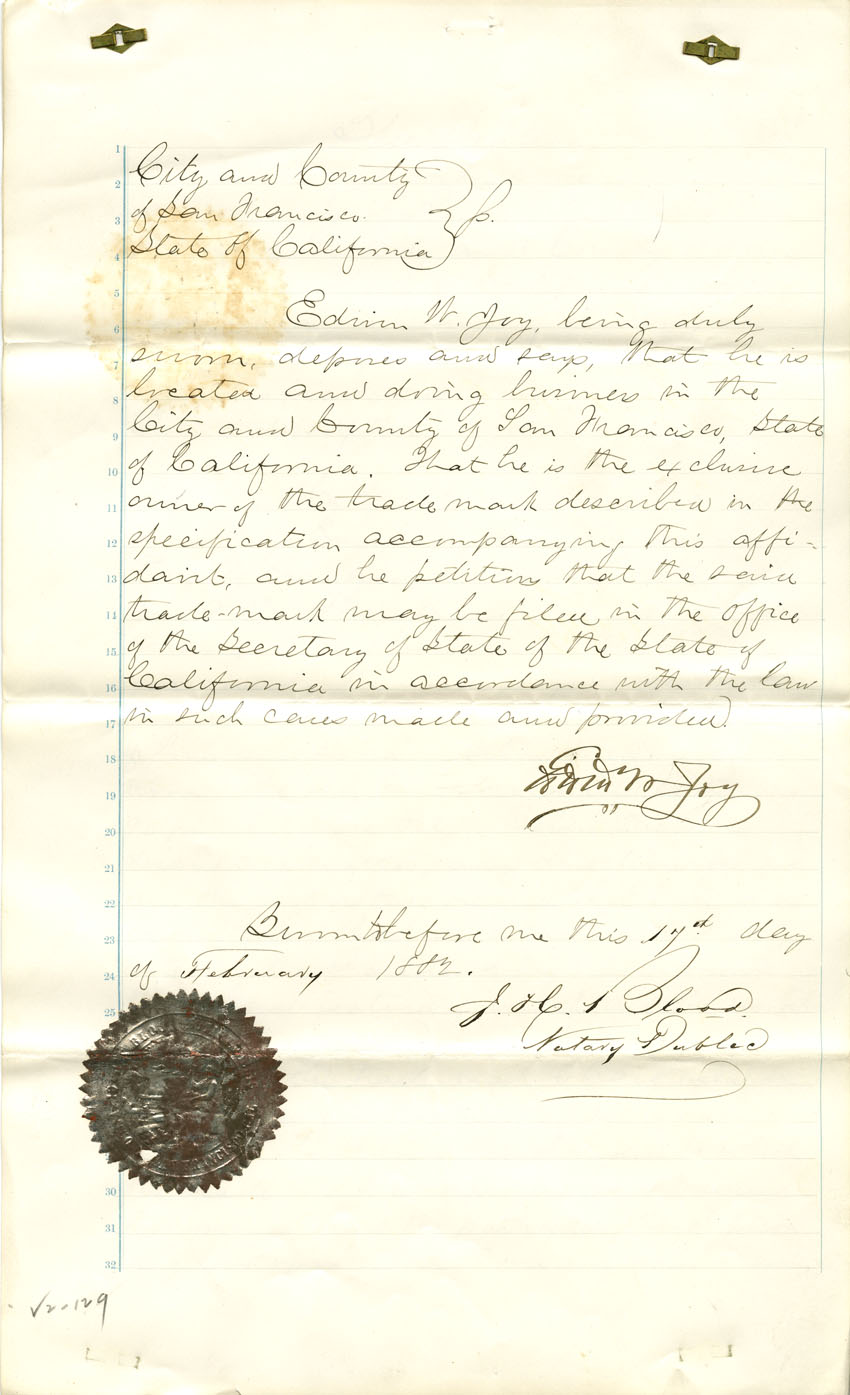 City and County
of San Francisco. } ss.
State of California
Edwin W. Joy, being duly
sworn, deposes and says, that he is
located and doing business in the
City and County of San Francisco, State
of California. That he is the exclusive
owner of the trade mark described in the
specification accompanying this affi-
davit, and he petitions that the said
trade-mark may be filed in the office
of the Secretary of State of the State of
California in accordance with the law
in such cases made and provided.
Edwin W Joy
Sworn to before me this 17th day
of February 1882.
J. H. Blood.
Notary Public
1
2
3
4
5
6
7
8
9
10
11
12
13
14
15
16
17
18
19
20
21
22
23
24
25
30
31
32
V2-129